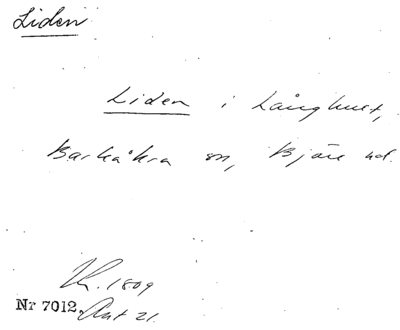 Liden
Liden i Långhult,
Barkåkra sn, Bjäre hd.
1809
Nr 7012. Akt 21.